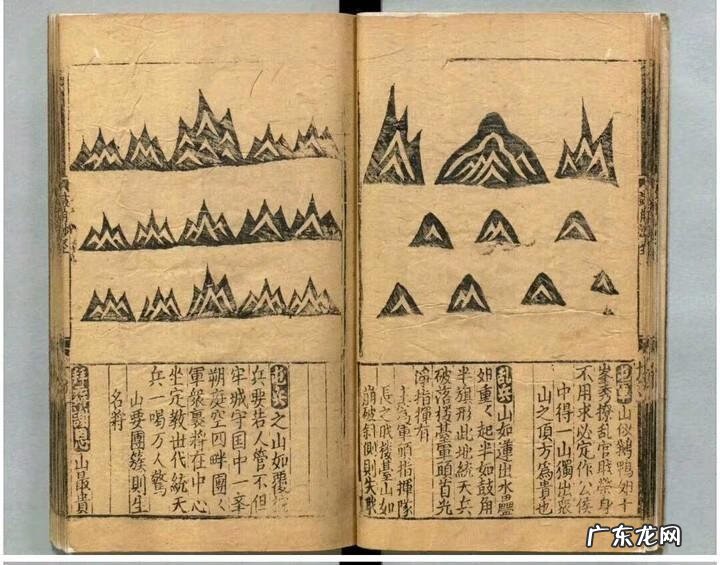 屯軍山似鵝鴨如十
峯秀撩乱官賊榮身
不用求必定作公侯
中得一山獨出張
山之頂方為貴也
乱兵山如蓮出水疊
如重〻起半如鼓角
半旗形此地統天兵
破落樓臺軍頭首光
淨指揮有
主為軍頭指揮隊
長之職樓臺山如
崩破斜側則失戰
屯兵之山如覆
兵要若人管不但
牢城守国中一辛
朔庭空四畔團〻
軍衆裏將在中心
坐定教世代統天
兵一喝万人驚
山要團簇則生
名將
山最貴
广东龙网